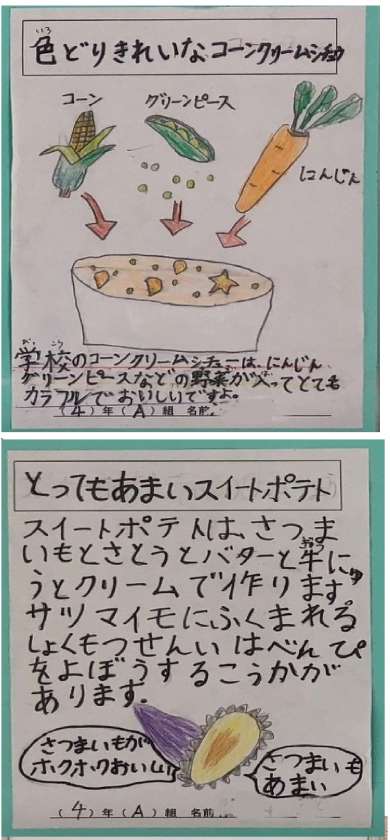 いろ
色どりきれいなコーンクリームシチュウ
コーン
グリーンピース
にんじん
がっ こう
学校のコーンクリームシチューは、にんじん
グリーンピースなどの野菜が入ってとても
カラフルでおいしいですよ。
(4)年(A)組 名前
とってもあまいスイートポテト
スイートポテトは、さつま
いもとさとうとバターと牛にゅ
うとクリームで作ります。
サツマイモにふくまれる
しょくもつせんいはべんぴ
をよぼうするこうかが
あります。
さつまいもが
ホクホクおいしい!!
さつまいも
あまい
(4)年(A)組 名前